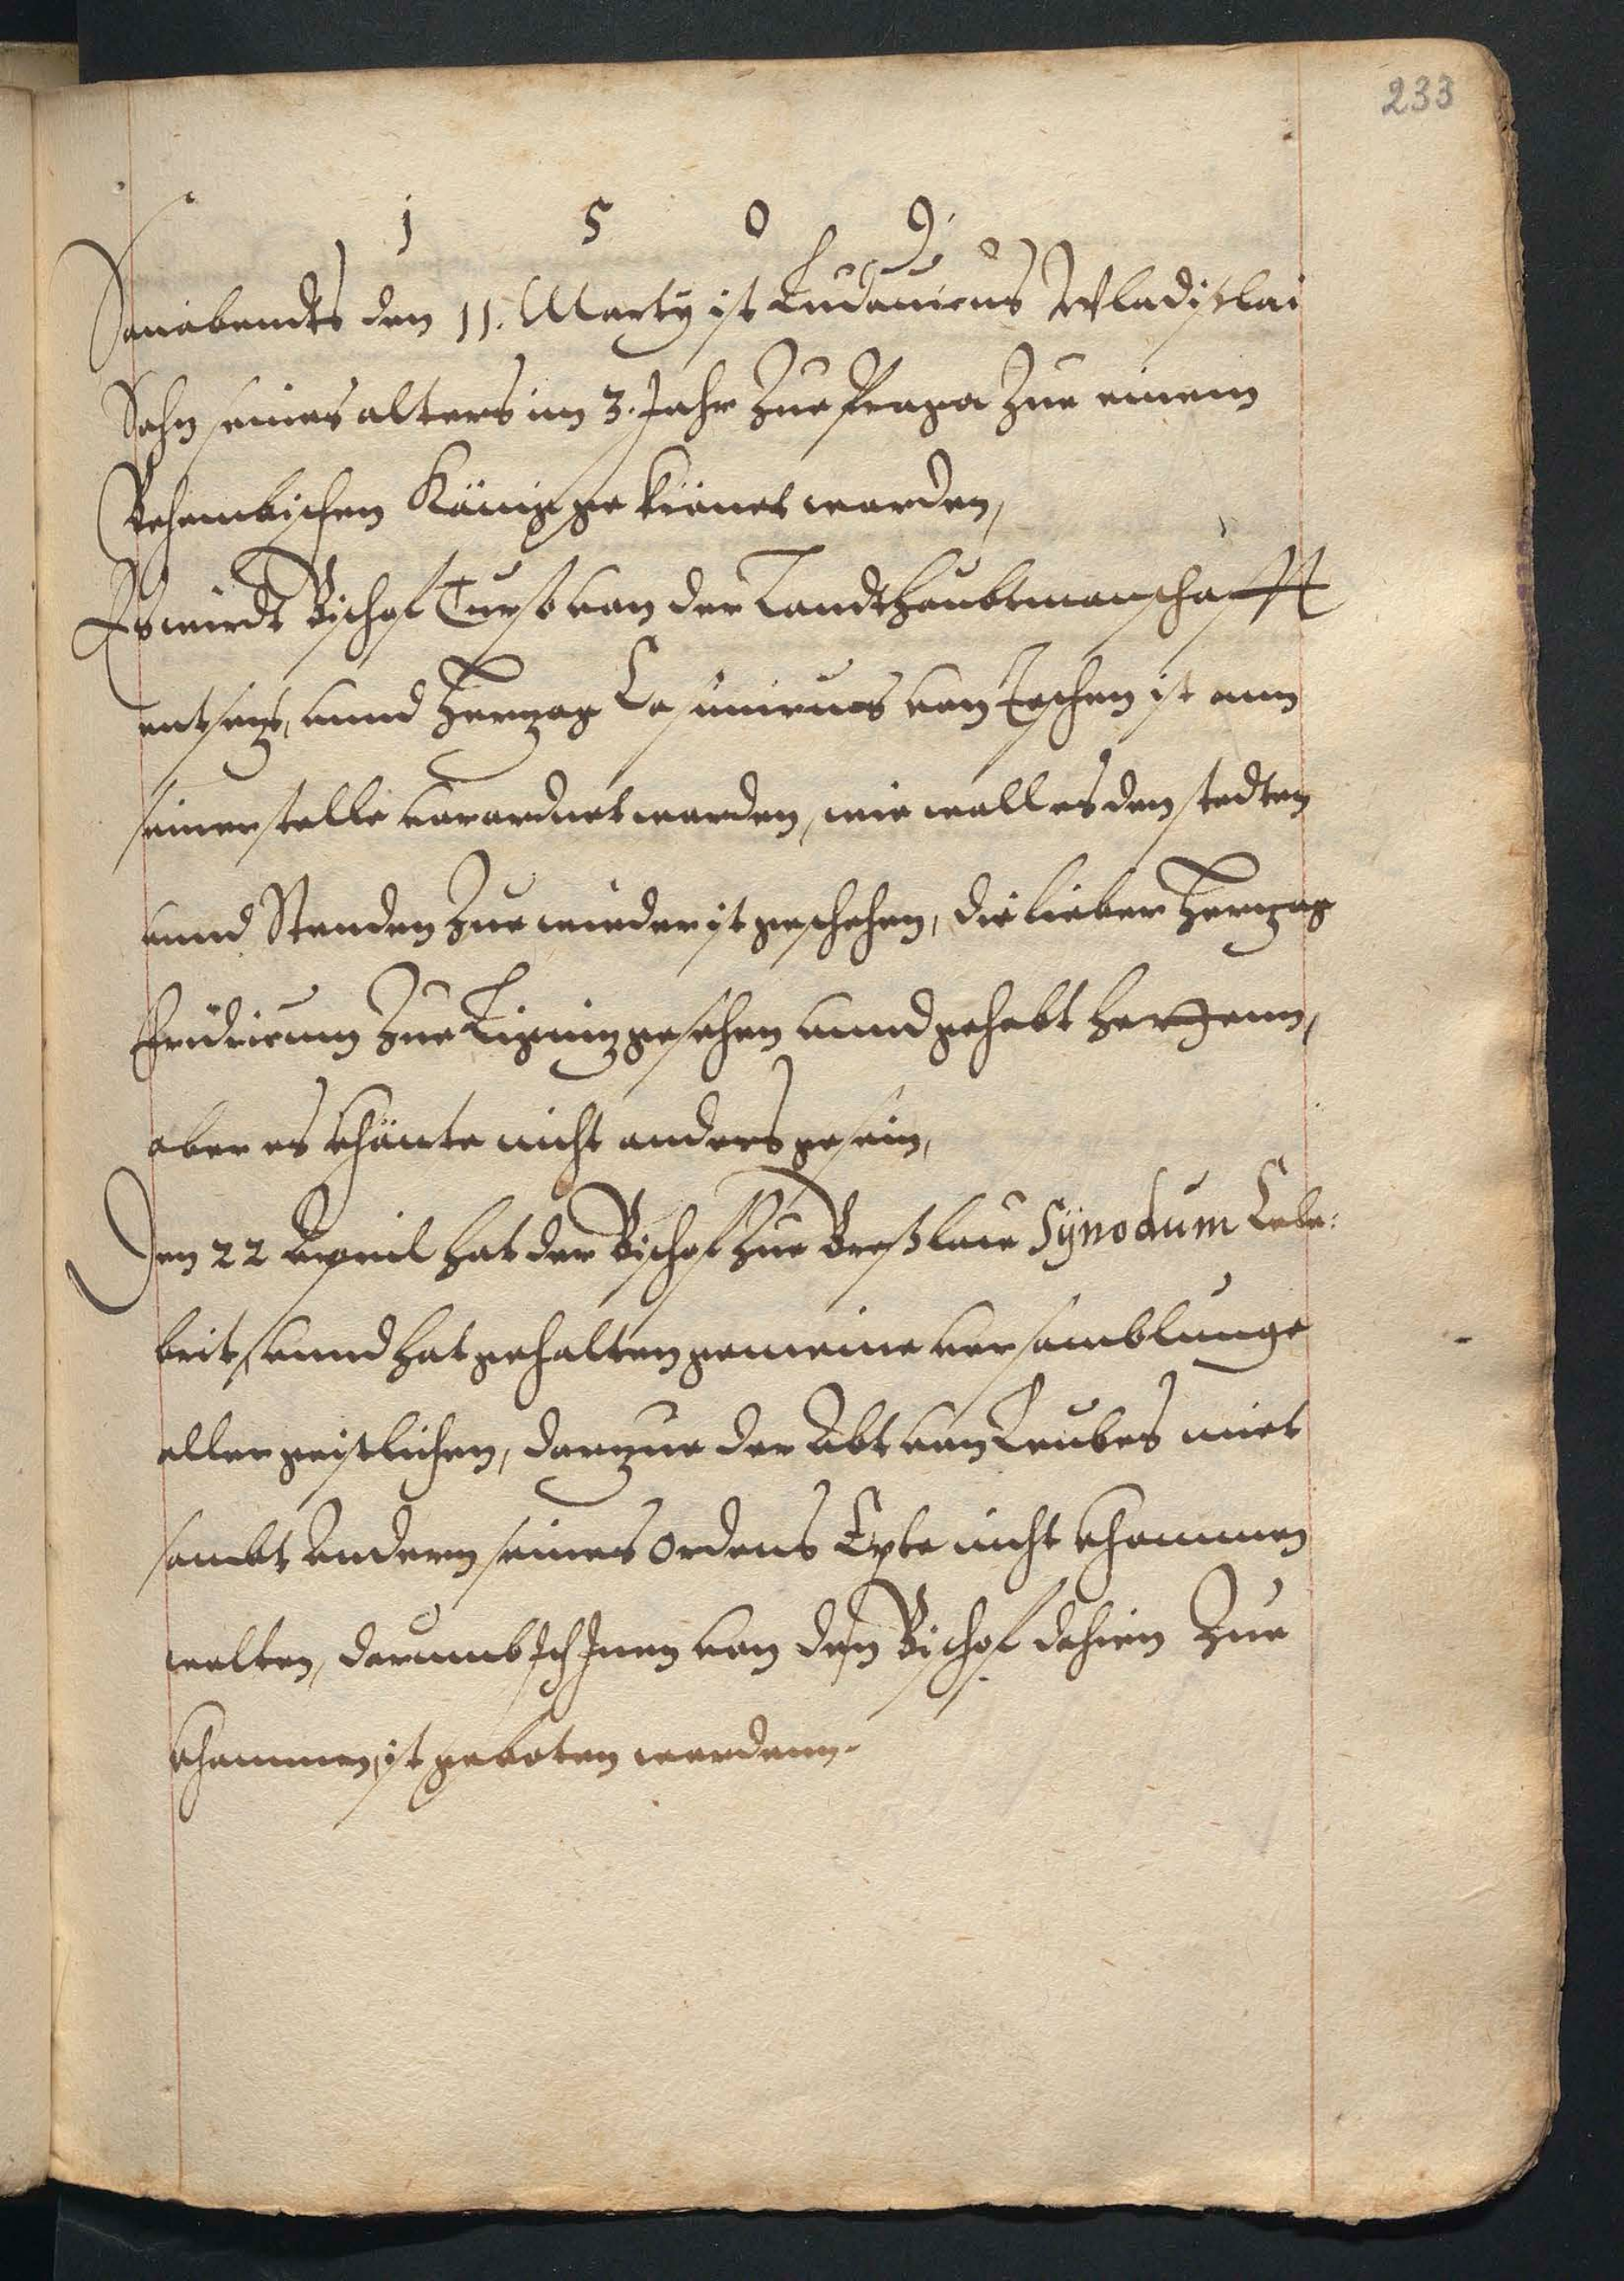 233
1 5 0 9.
Sonabendts den 11. Marty ist Ludouicus Wladislai
Sohn seines alters im 3. Jahr Zue Praga Zue einem
Behembischen König gekrönet worden,
Es wirdt Bischof Turso von der Landthaubtmanschafft
entsetzt, unnd Hertzog Casimirus von Teschen ist ann
seiner stelle verordnet worden, wie woll es den stedten
unnd Stenden Zue wieder ist geschehen, die lieber Hertzog
Fridricum Zue Lignitz gesehen unnd gehabt hettenn,
aber es khönte nicht anders gesein,
Den 22 Appril hat der Bischof Zue Breßlau Synodum Cele:
brirt, unnd hat gehalten gemeine versamblunge
aller geistlichen, dartzue der Abt von Leubes miet
sambt andern seines Ordens Epte nicht khommen
wolten, darumb Inen von den Bischof dahien Zue
khommen, ist geboten wordenn.